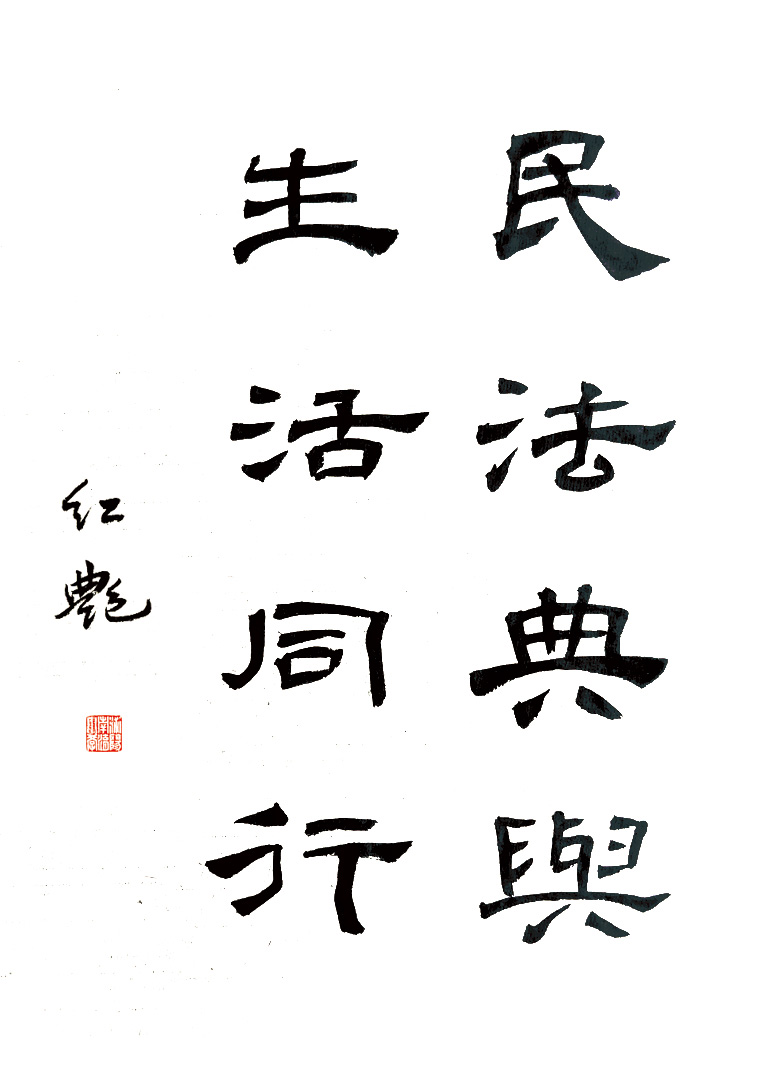 民法典與
生活同行
红艷